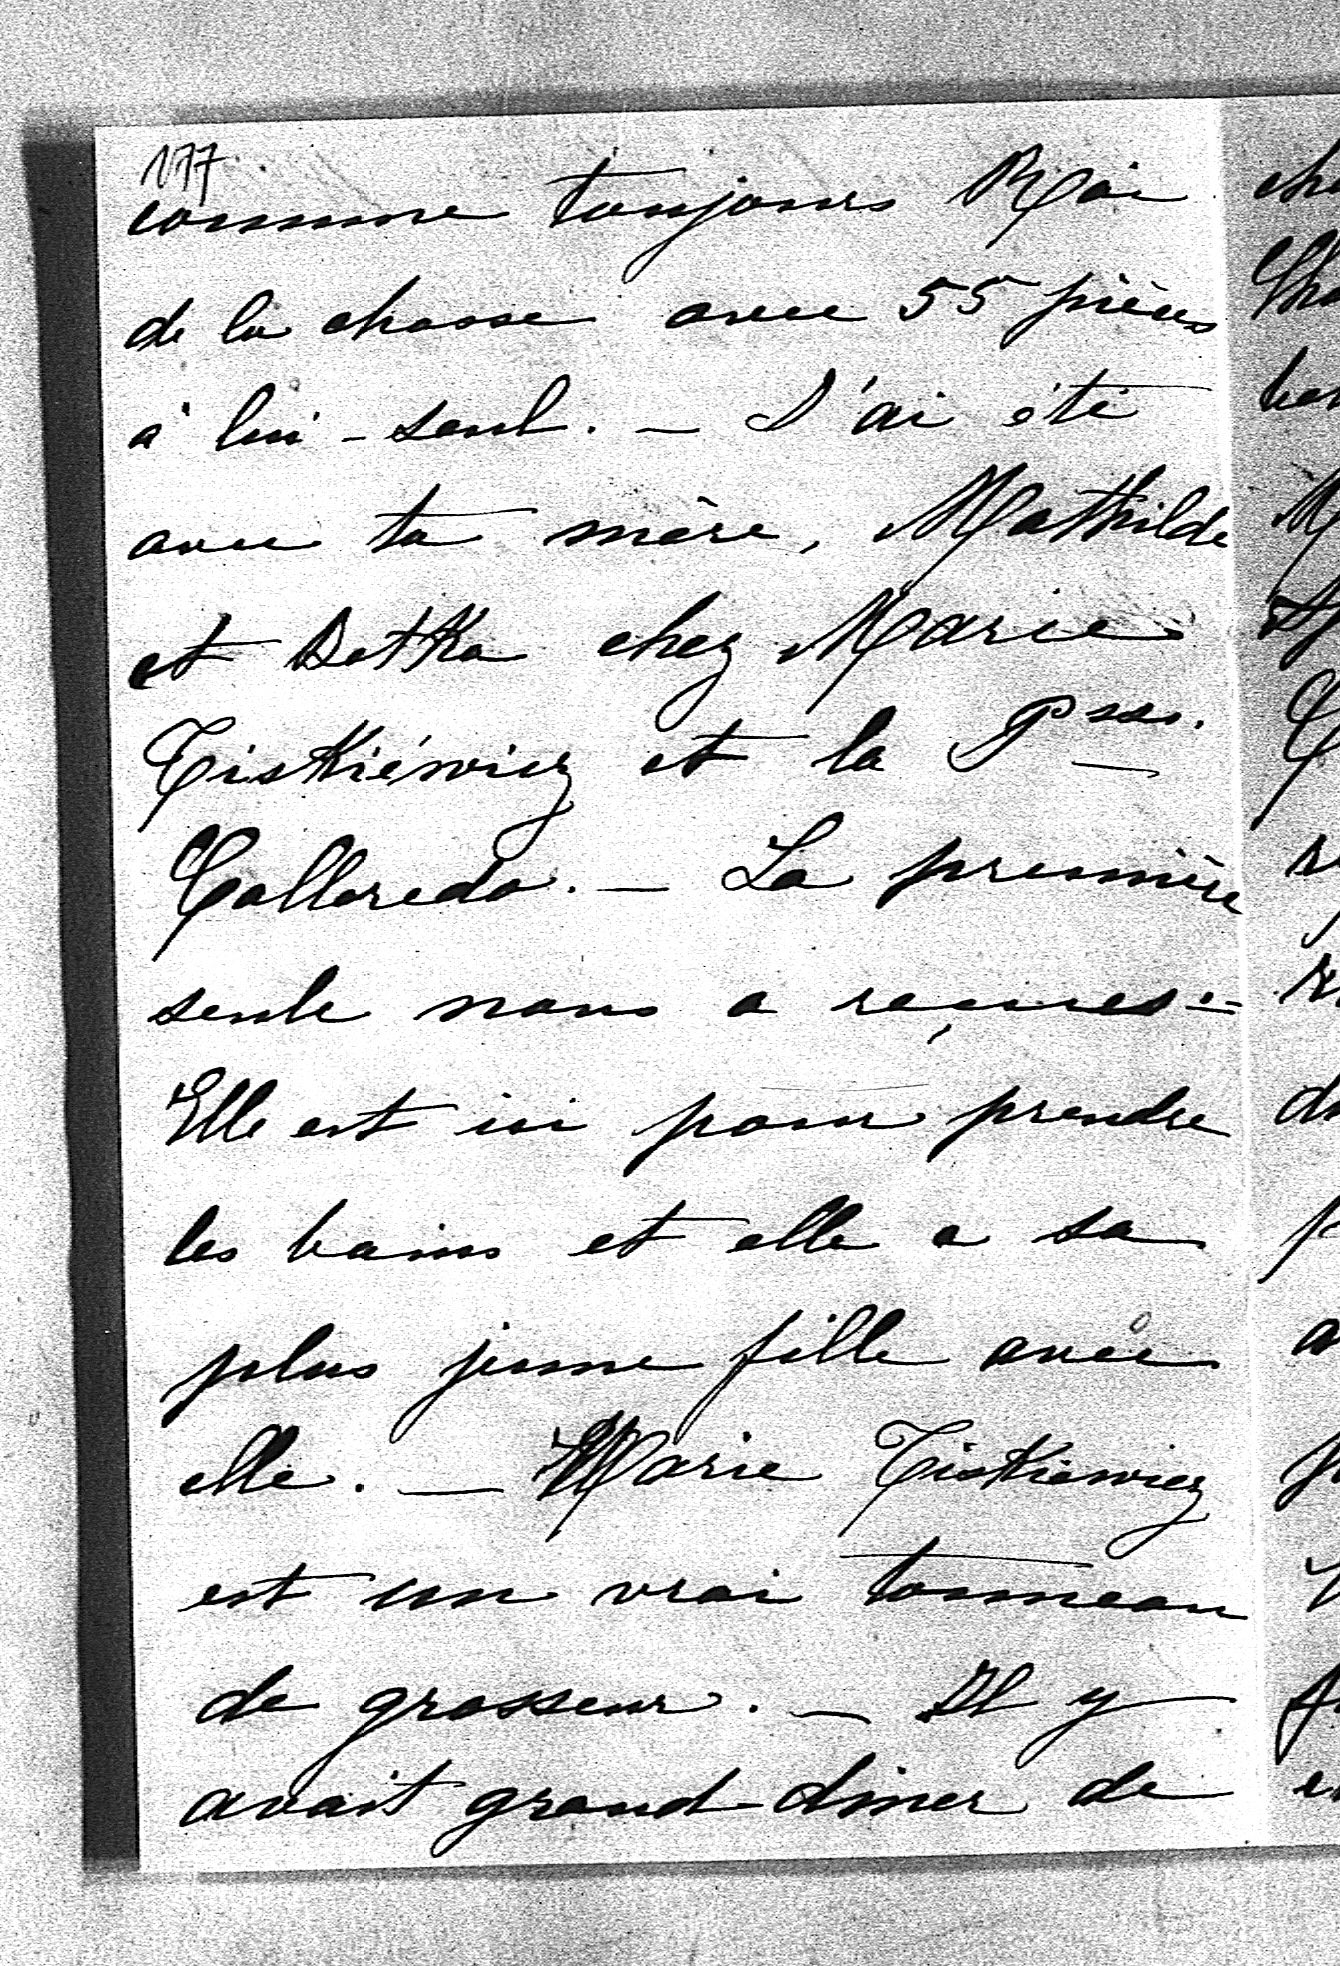 177
comme toujours Roi
de la chasse avec 55 pièces
à lui-seul. — J'ai été
avec ta mère, Mathilde
et Betka chez Marie
Tiskiéwicz et la Psse.
Colloredo. — La première
seule nous a reçues =
Elle est ici pour prendre
les bains et elle a sa
plus jeune fille avec
elle. — Marie Tiskiewicz
est un vrai tonneau
de grosseur. — Il y
avait grand-diner de